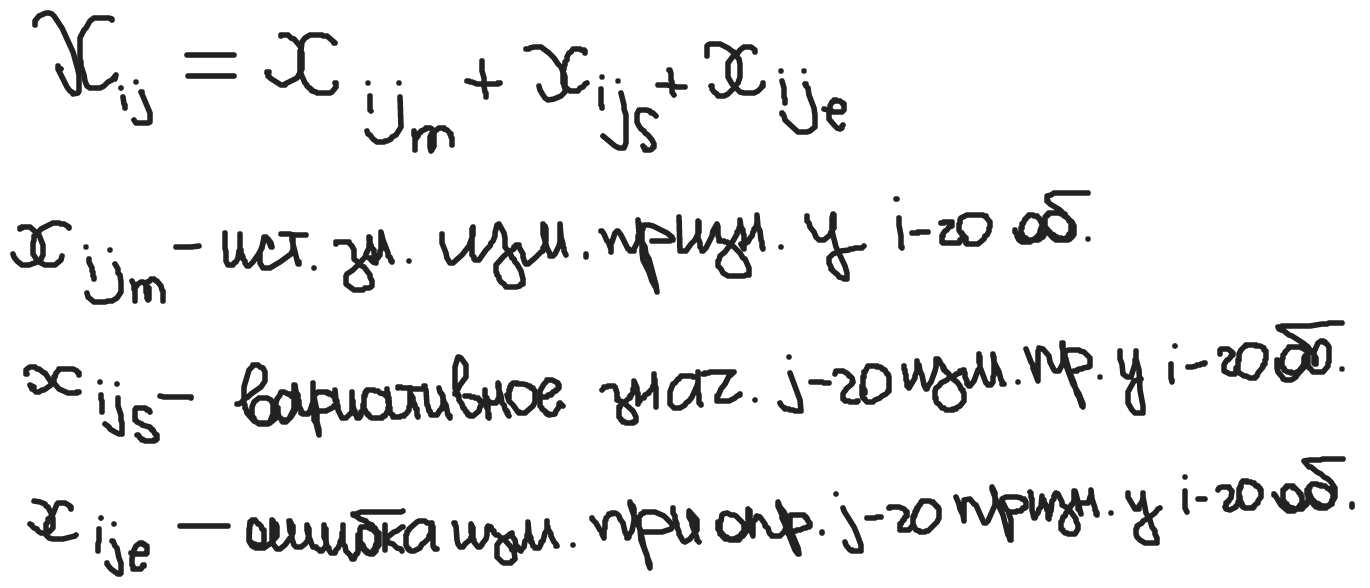 X_{ij} = x_{ij_m} + x_{ij_s} + x_{ij_e}
x_{ij_m} - ист. зн. изм. призн. у i-го об.
x_{ij_s} - вариативное знач. j-го изм. пр. у i-го об.
x_{ij_e} - ошибка изм. при опр. j-го призн. у i-го об.